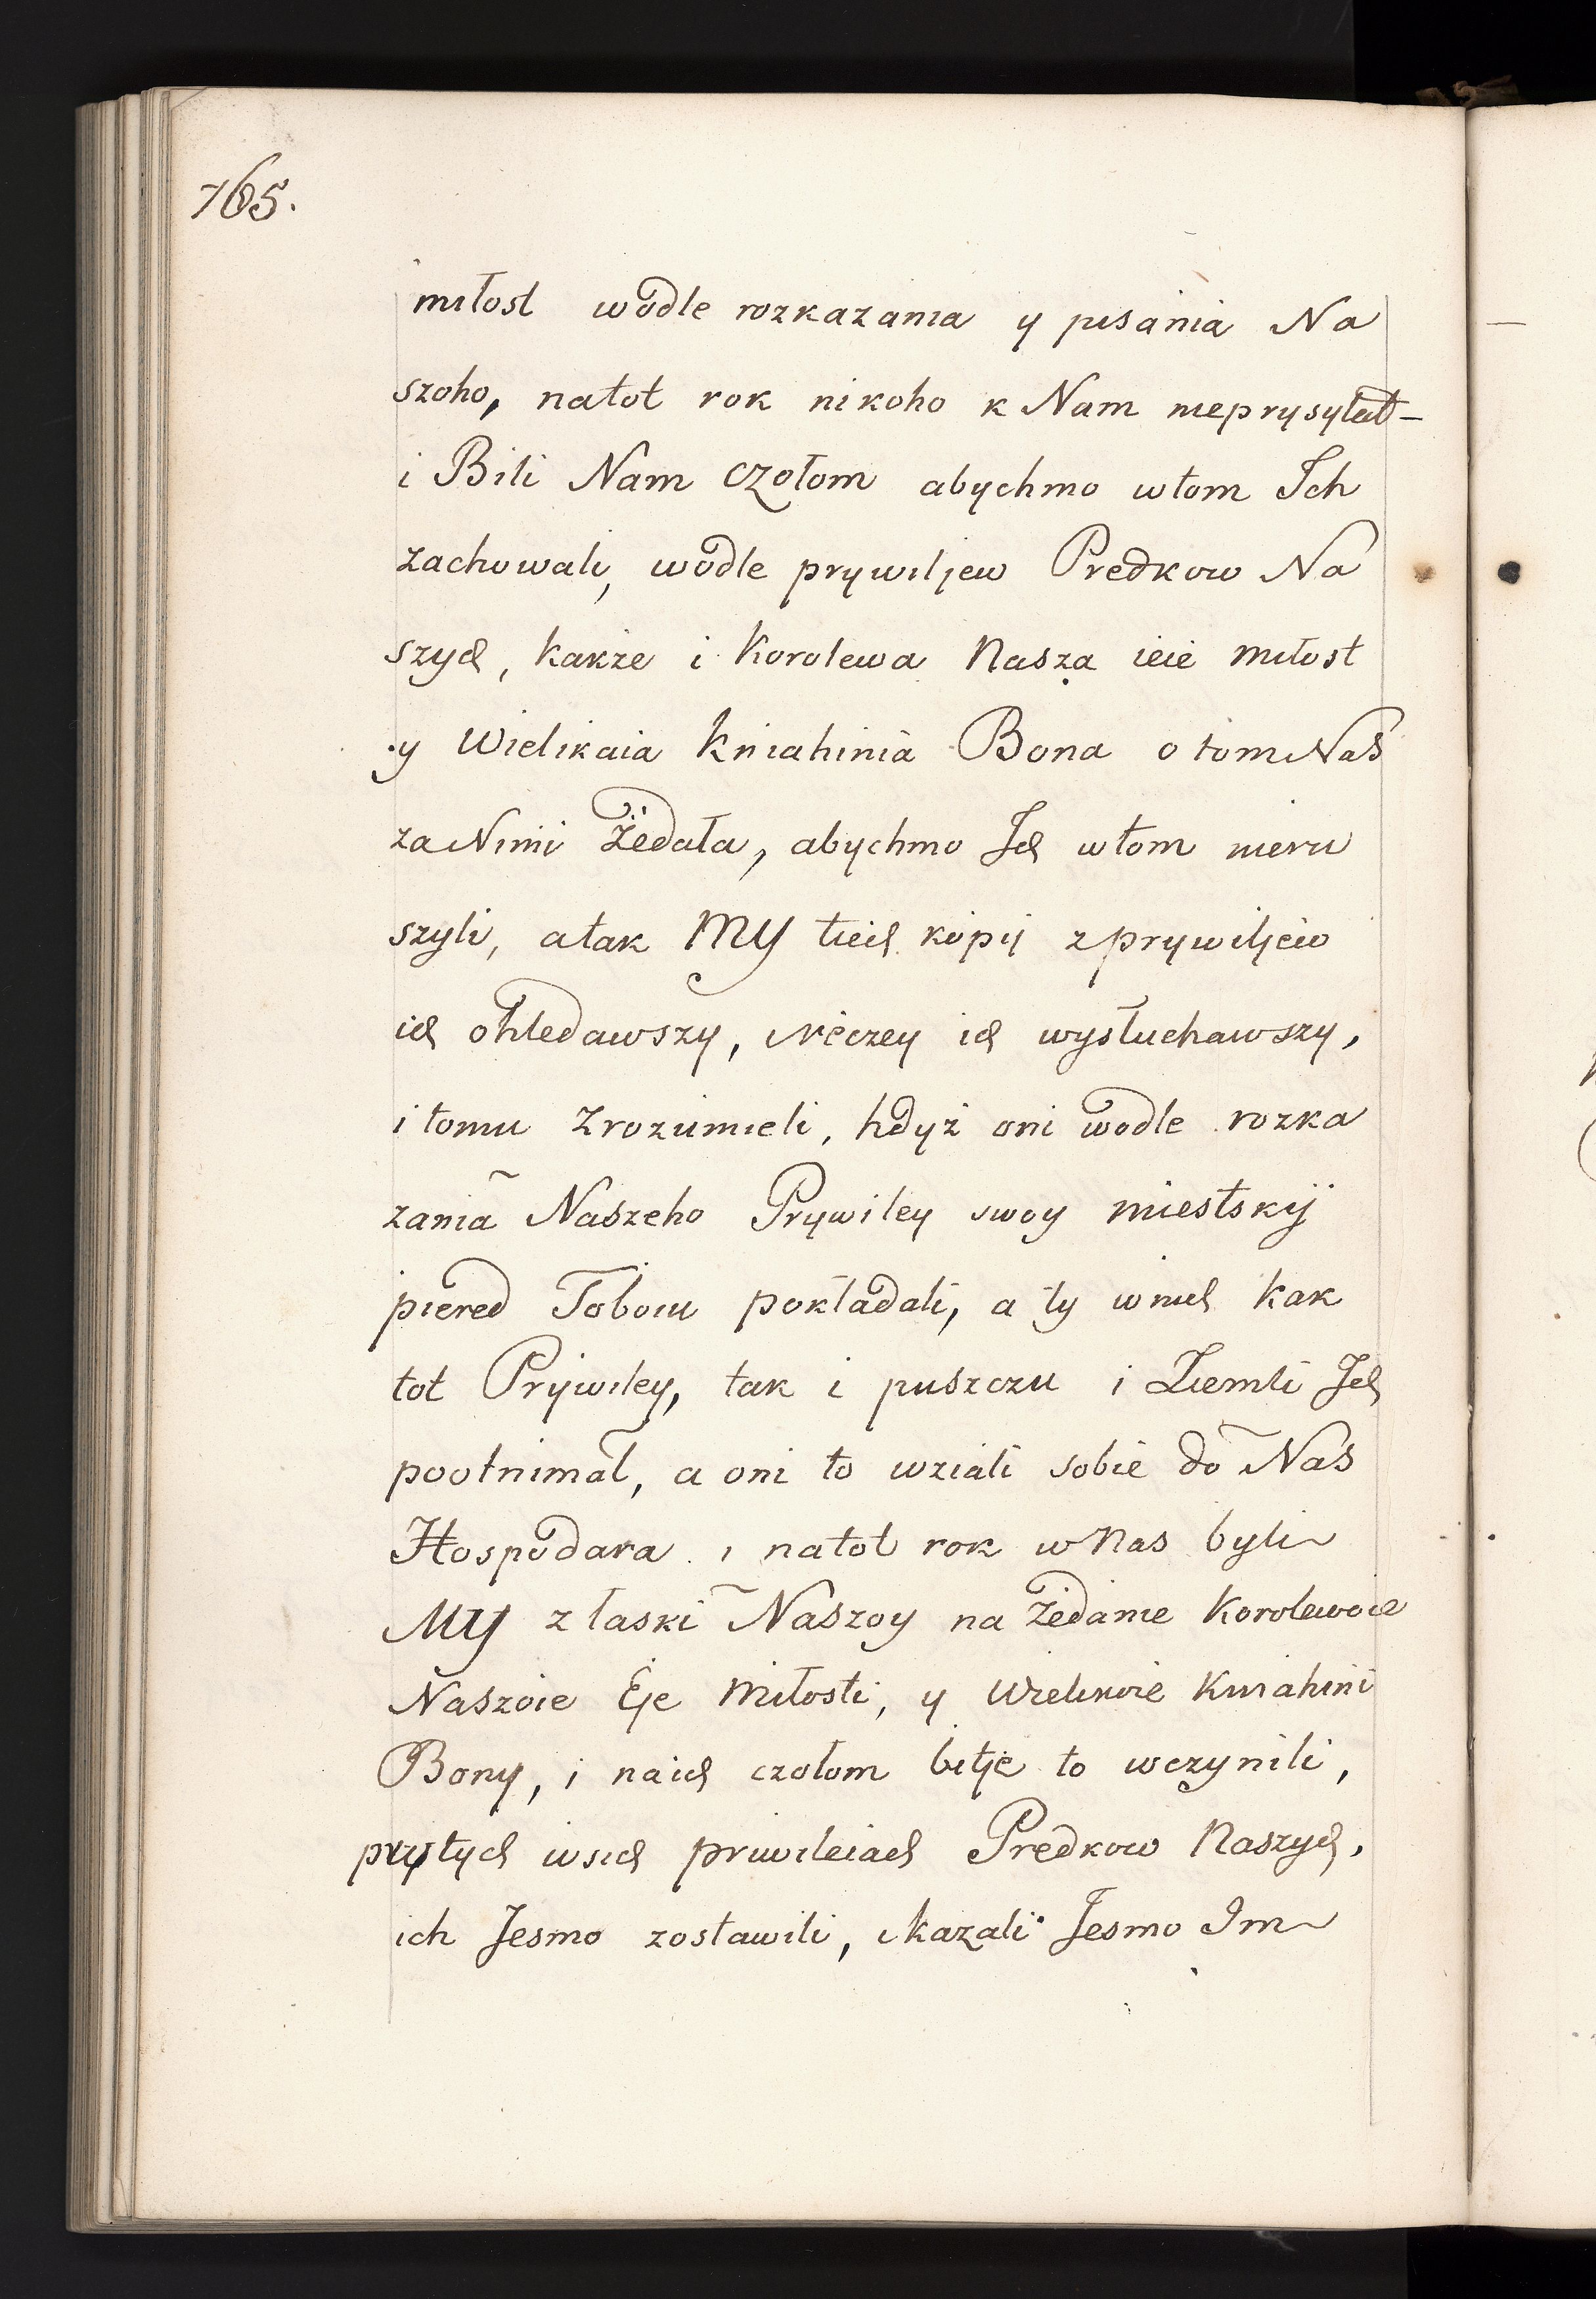 765.
miłost wodle rozkazania y pisania Na
szoho, natot rok nikoho k Nam nieprysyłał –
i Bili Nam czołom abychmo wtom Ich
zachowali, wodle prywiljew Predkow Na
szych, kakże i Korolewa Nasza ieie miłost
y Wielikaia Kniahinia Bona o tom Nas
za Nimi Żedała, abychmo Ich wtom nieru
szyli, atak MY tiech kopij z prywiljew
ich ohledawszy, i reczey ich wysłuchawszy,
i tomu zrozumieli, hdyż oni wodle rozka
zania Naszeho Prywiley swoy miestskij
piered Toboiu pokładali, a ty wnich kak
tot Prywiley, tak i puszczu i Ziemli Ich
pootnimał, a oni to wziali sobie do Nas
Hospodara i natot rok w Nas byli
MY z łaski Naszoy na żedanie Korolewoie
Naszoie Eje Miłosti, y Wielikoie Kniahini
Bony, i naich czołom bitje to wczynili,
prytych wsich priwileiach Predkow Naszych,
ich Jesmo zostawili, i kazali Jesmo Im